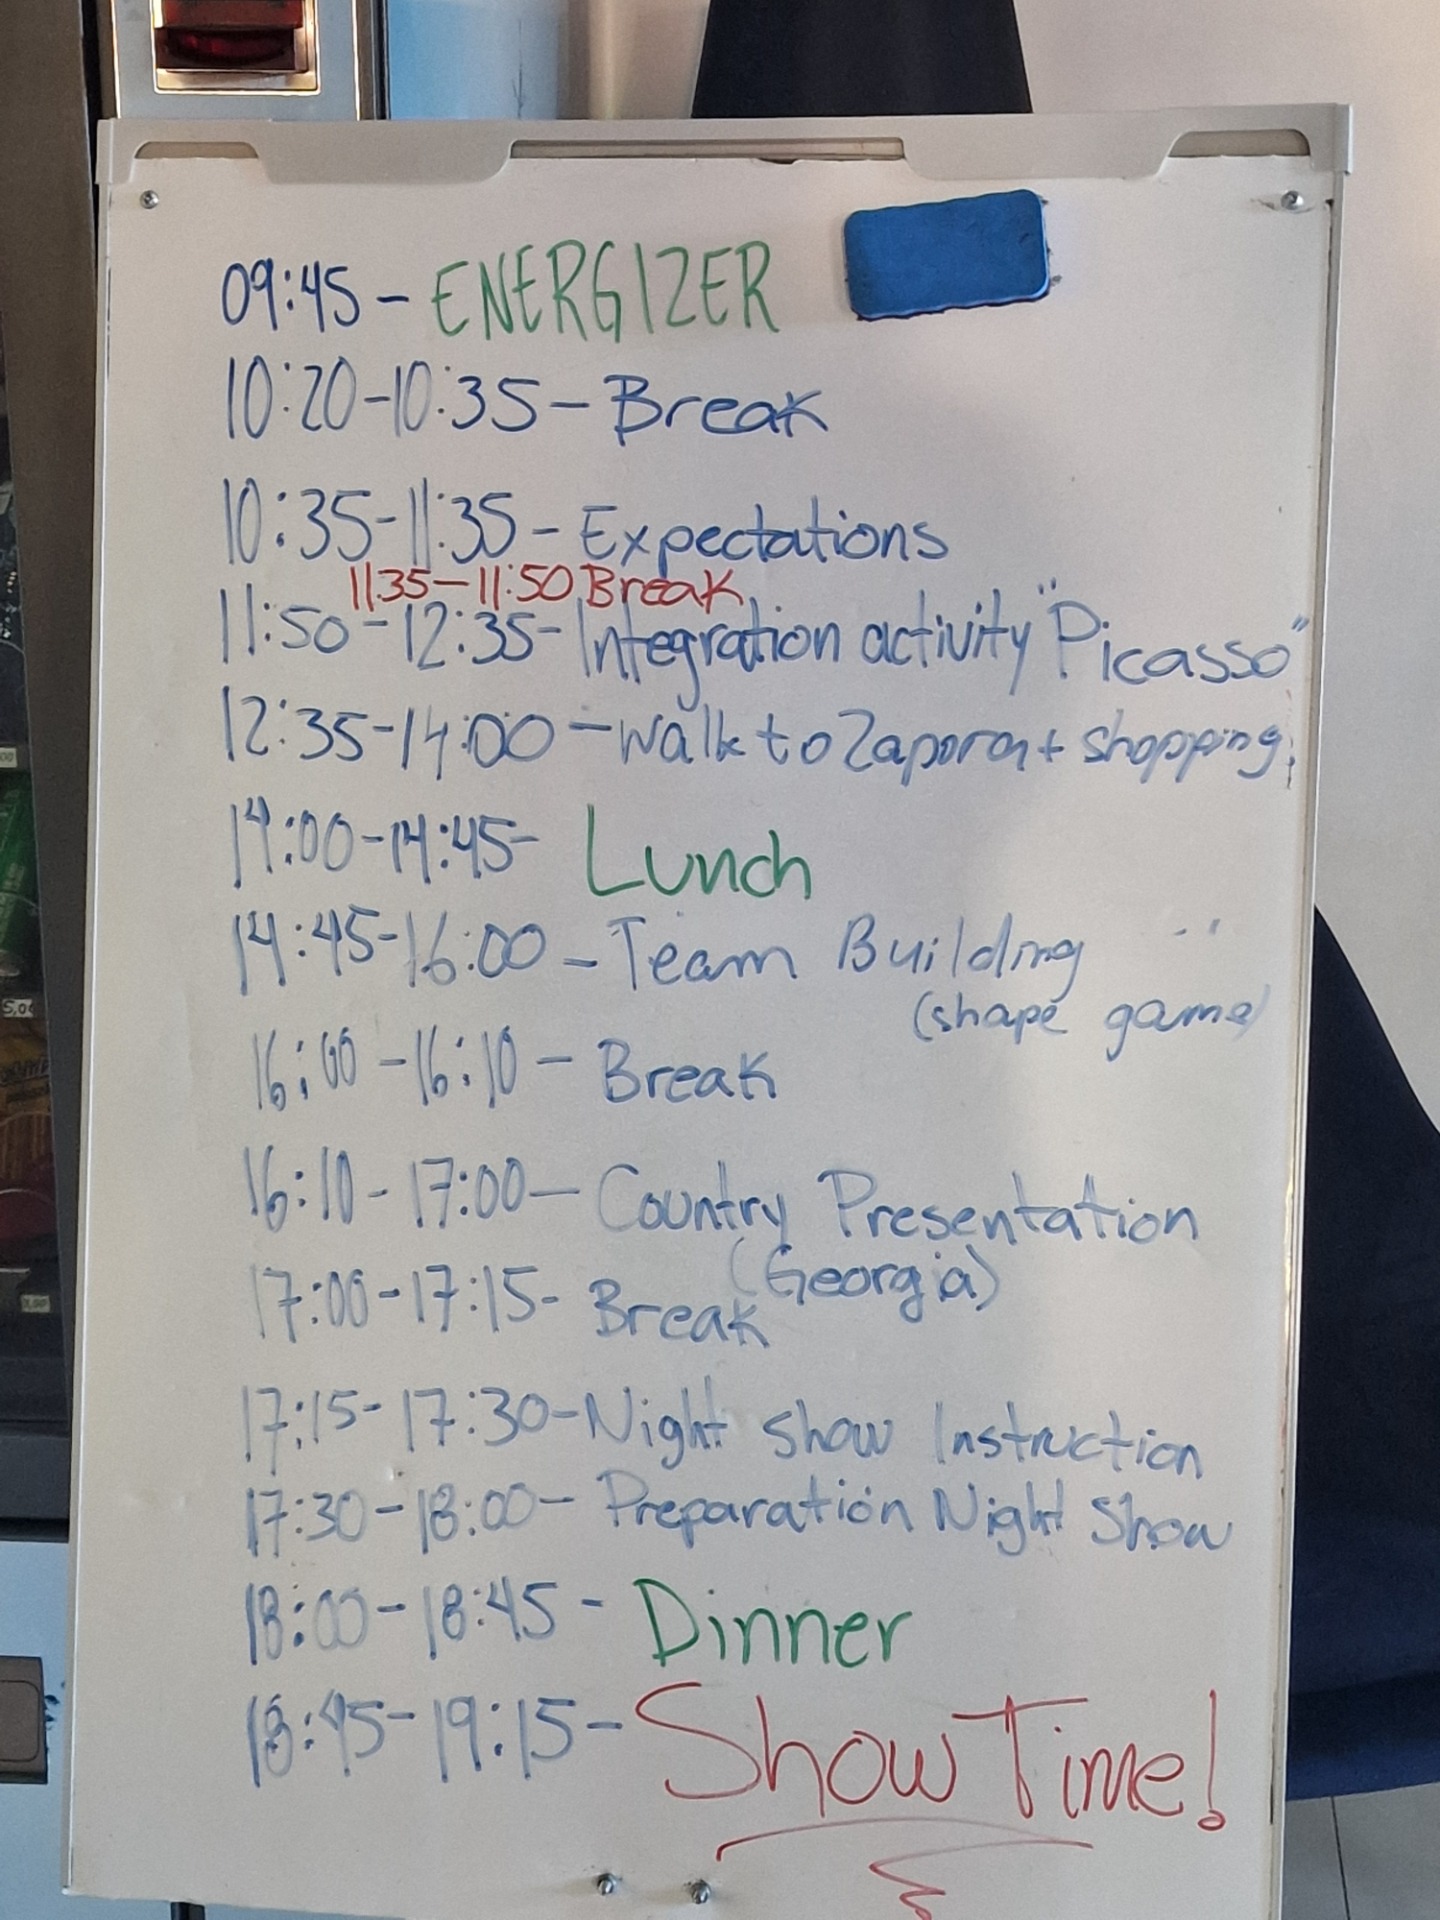 09:45 - ENERGIZER
10:20-10:35 - Break
10:35-11:35 - Expectations
11:35-11:50 Break
11:50-12:35- Integration activity "Picasso"
12:35-14:00 - Walk to Zapora + shopping
14:00-14:45- Lunch
14:45-16:00 - Team Building
(shape game)
16:00-16:10 - Break
16:10-17:00 - Country Presentation
(Georgia)
17:00-17:15- Break
17:15-17:30-Night show Instruction
17:30-18:00- Preparation Night Show
18:00-18:45 - Dinner
18:45-19:15- Show Time!